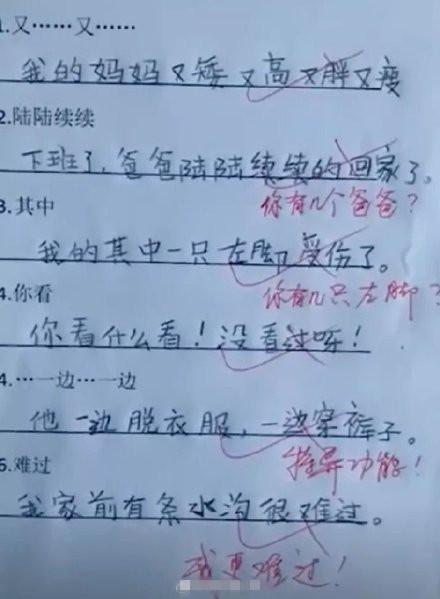 1.又……又……
我的妈妈又矮又高又胖又瘦
2.陆陆续续
下班了,爸爸陆陆续续的回家了。
你有几个爸爸?
3.其中
我的其中一只左脚受伤了。
你有几只左脚?
4.你看
你看什么看!没看过呀!
4.…一边…一边
他一边脱衣服,一边穿裤子。
特异功能!
5.难过
我家前有条水沟很难过。
我更难过!